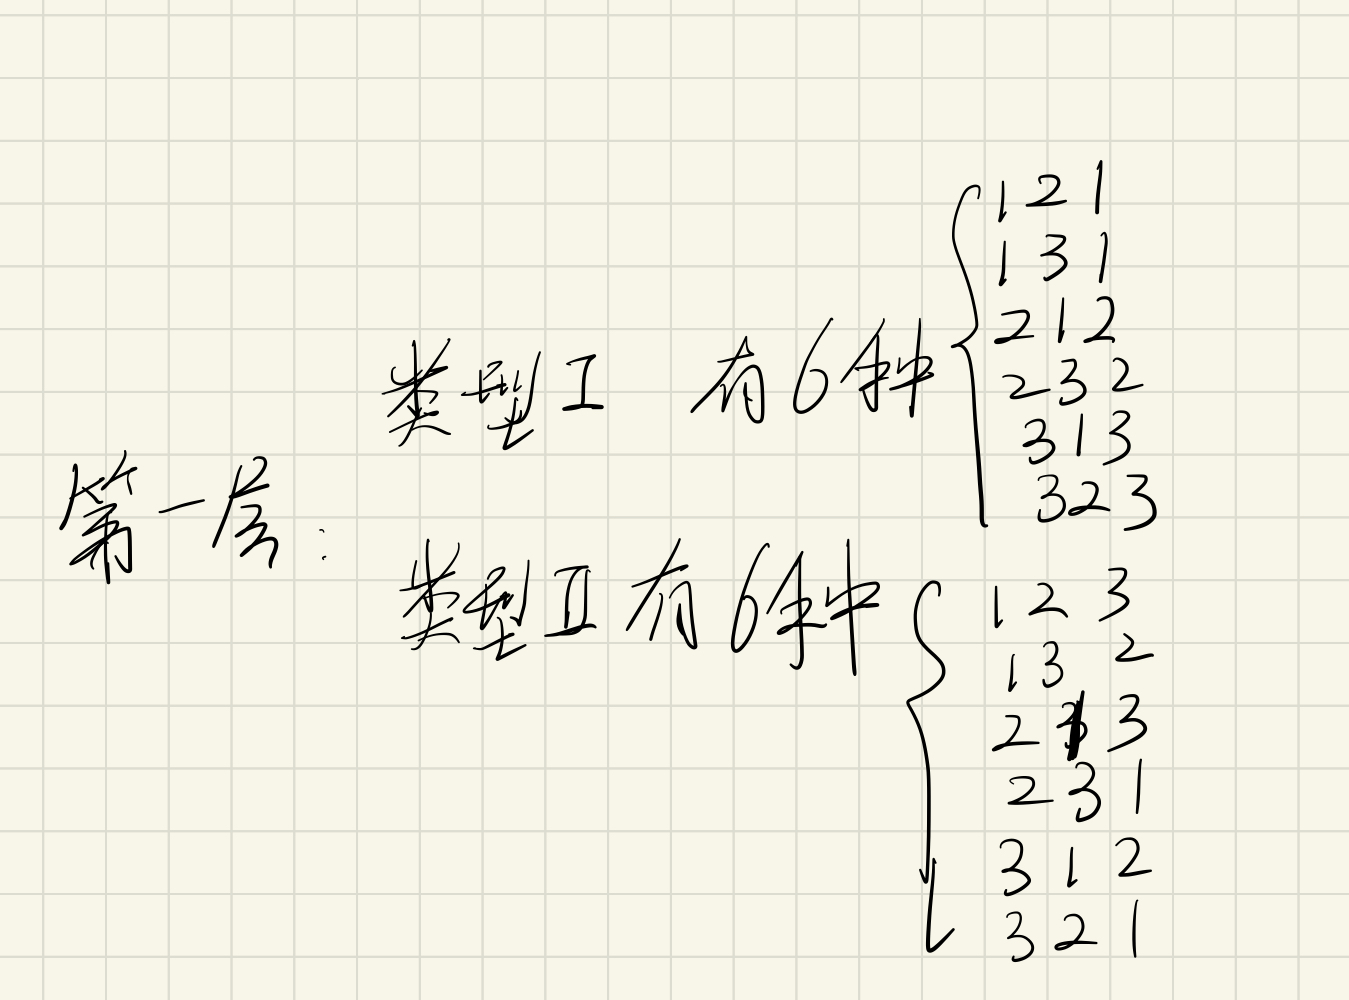 第一层：
类型I 有6种
1 2 1
1 3 1
2 1 2
2 3 2
3 1 3
3 2 3
类型II有6种
1 2 3
1 3 2
2 1 3
2 3 1
3 1 2
3 2 1